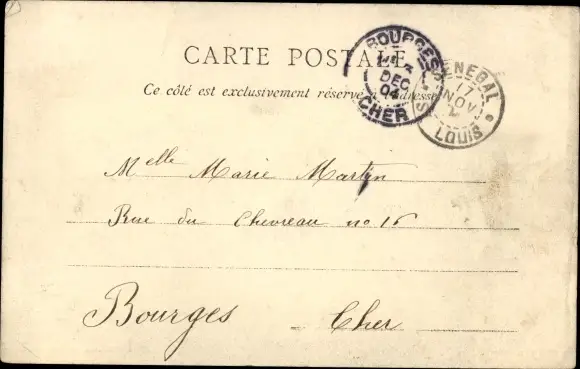 CARTE POSTALE
Ce côté est exclusivement réservé à l'adresse
BOURGES
DEC
04
CHER
SENEGAL
17
NOV
LOUIS
Melle Marie Martin
Rue du Chevreau no 16
Bourges Cher